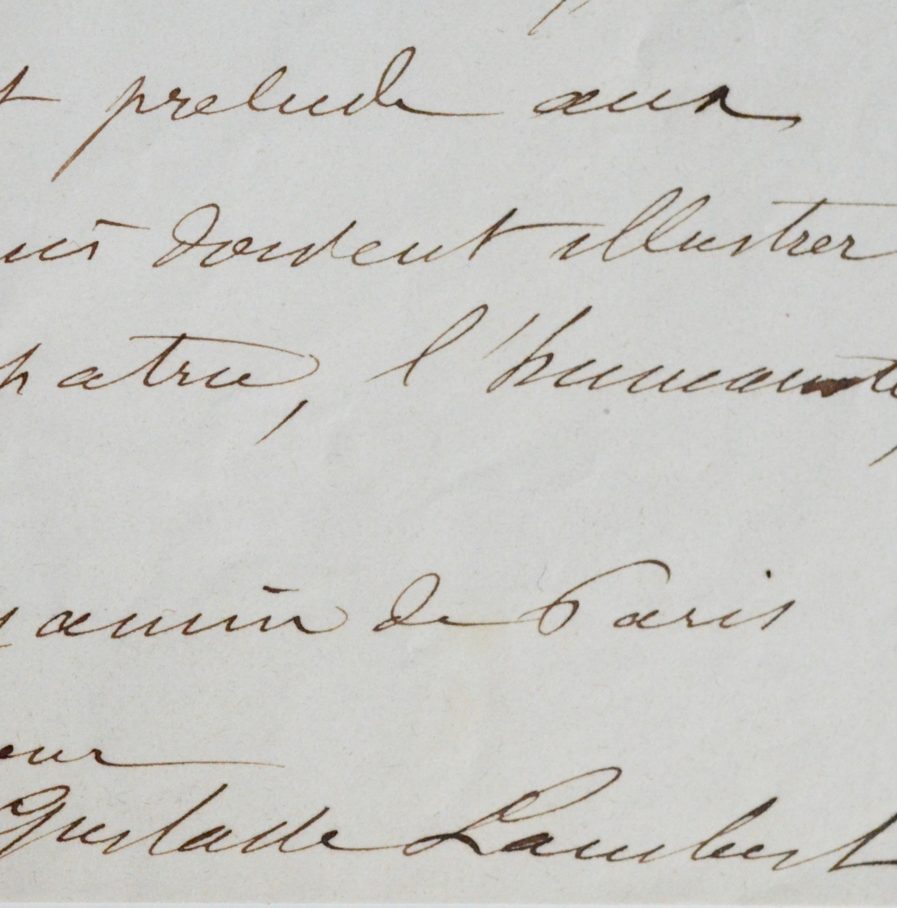 t prelude aux
qui doivent illustrer
patrie, l'humanité,
de Paris
eur
Gustave Lambert